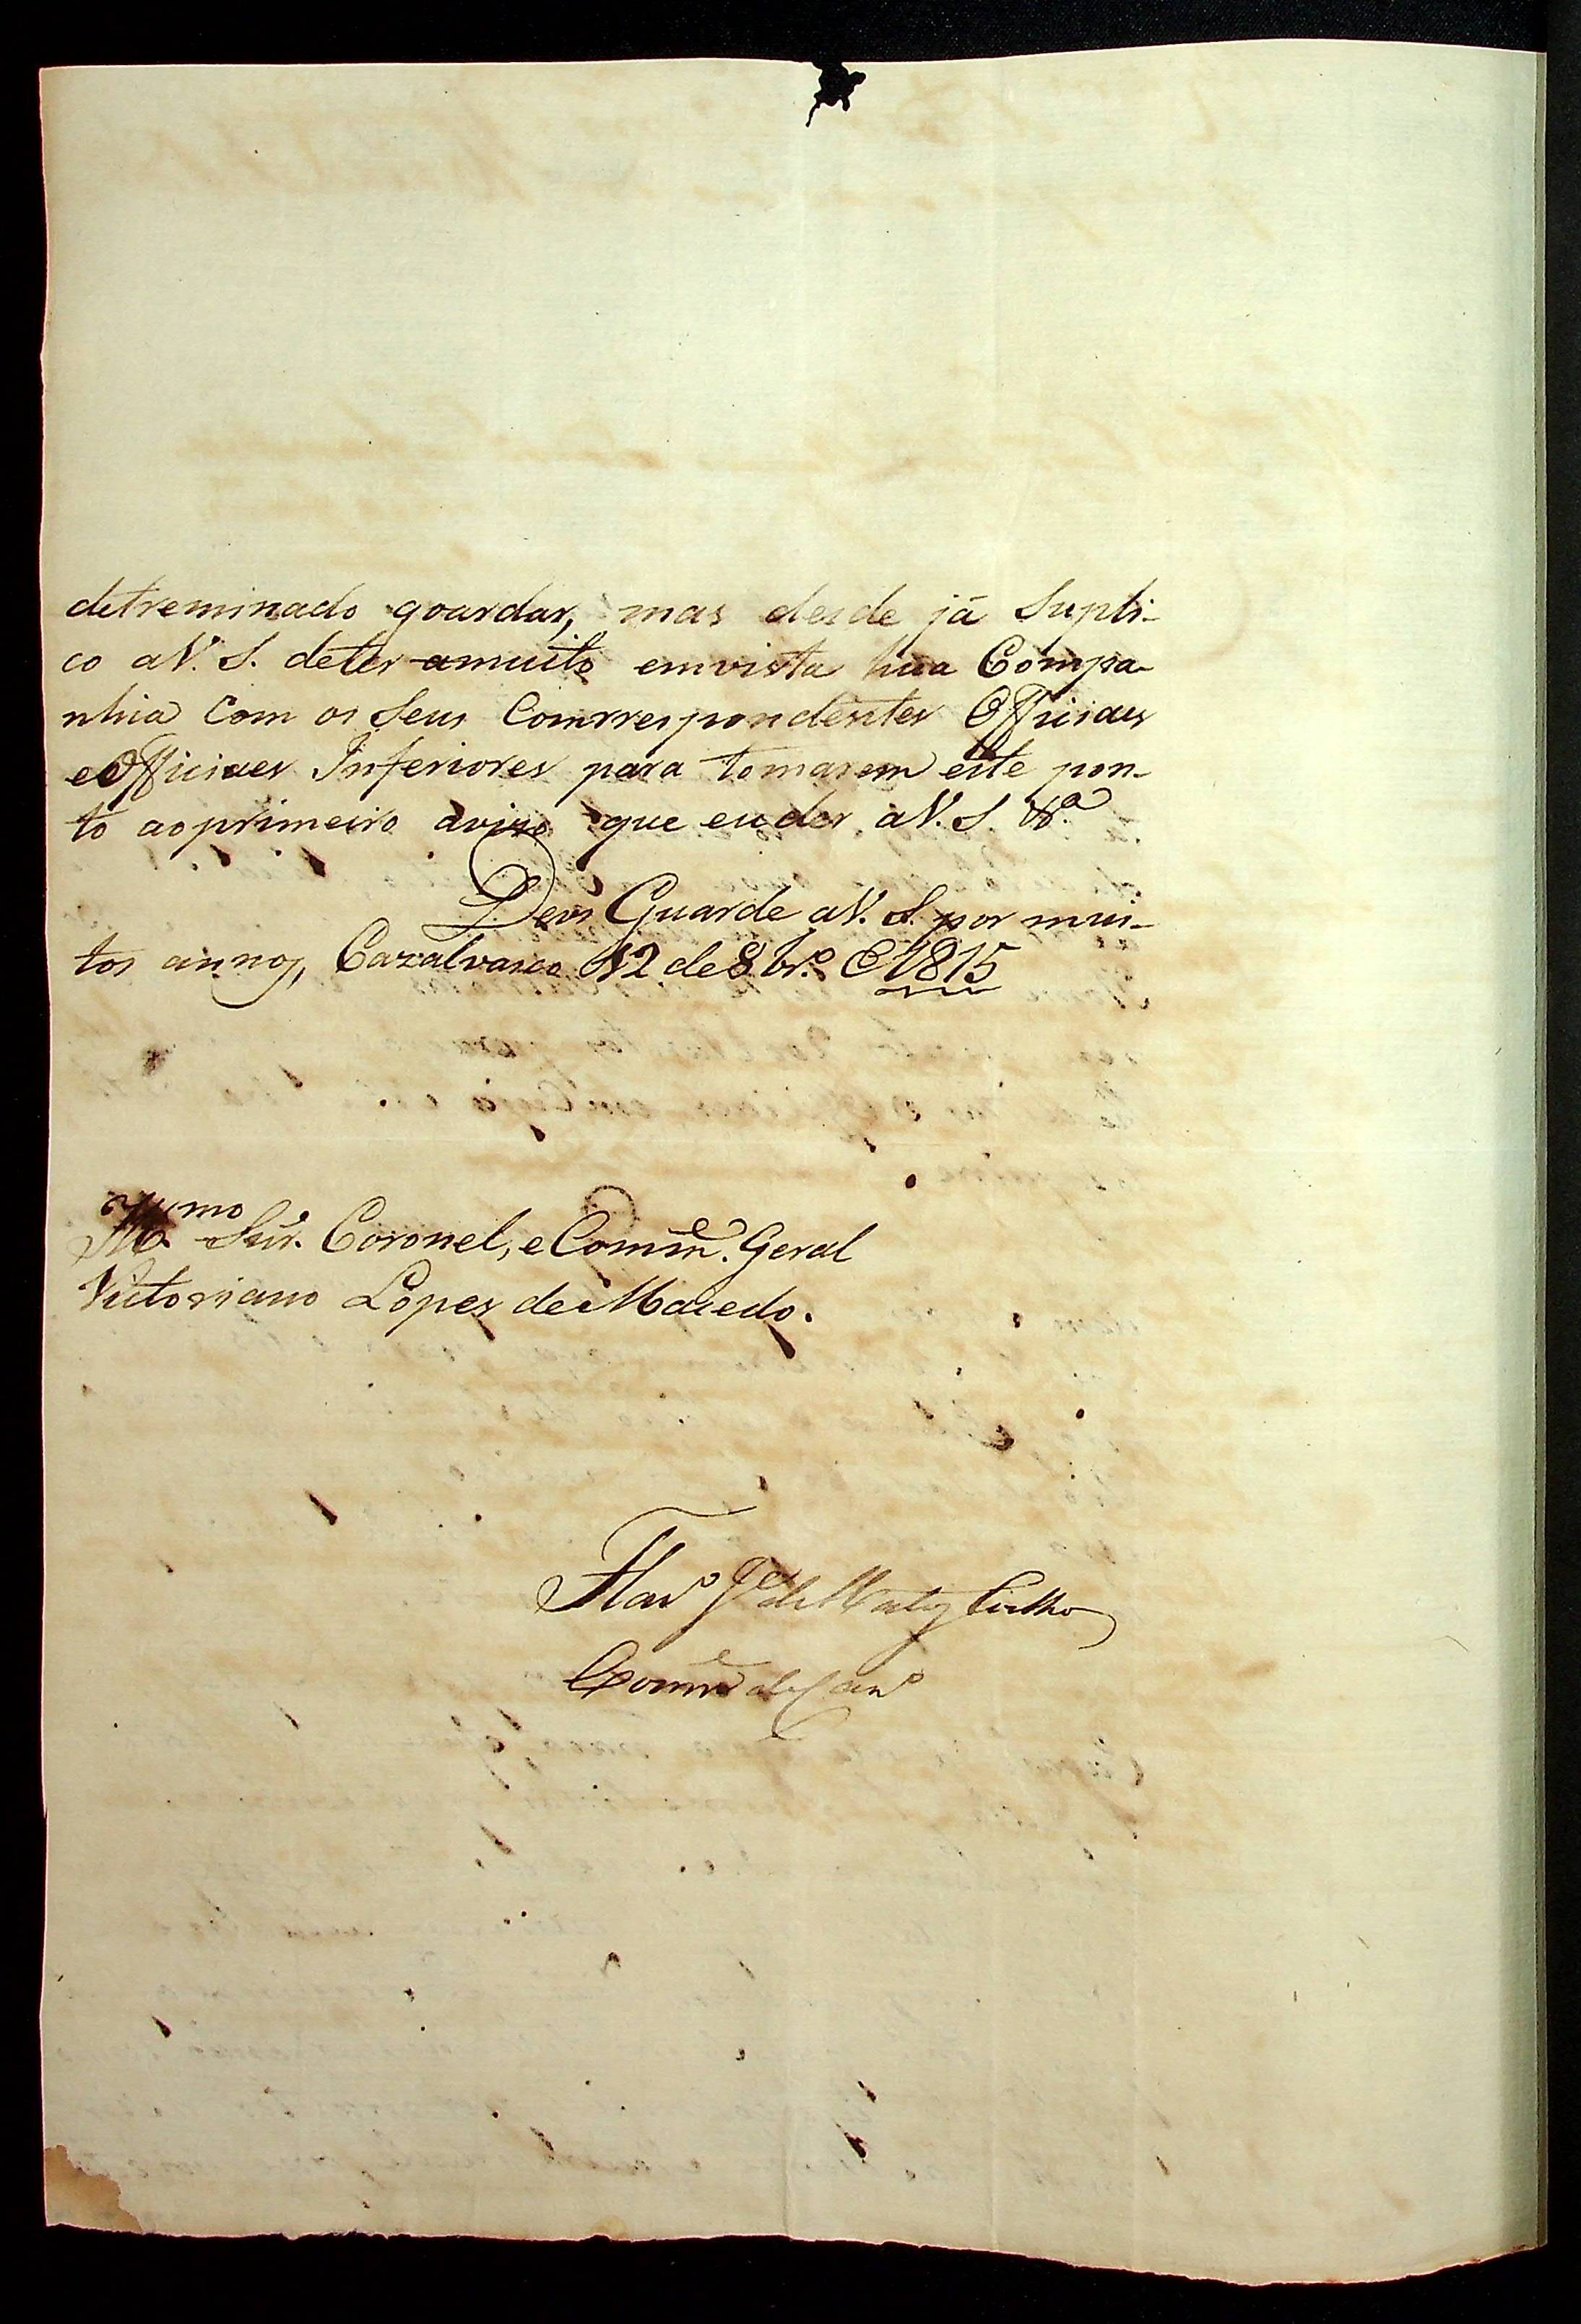 detreminado goardar, mas desde já Supli-
co aV. S. deter amuito emvista hua Compa-
nhia Com os Seus Comrrespondentes Officiaes
eOfficiaes Inferiores para tomarem este pon-
to aoprimeiro avizo que euder aV. S.ª
Deos Guarde aV. S. por mui-
tos annos, Cazalvasco 12 de 8br.º 1815
Ill.mo Snr. Coronel, e Comm.e Geral
Victoriano Lopes de Macedo.
de Mattos Coelho
Comm.e de